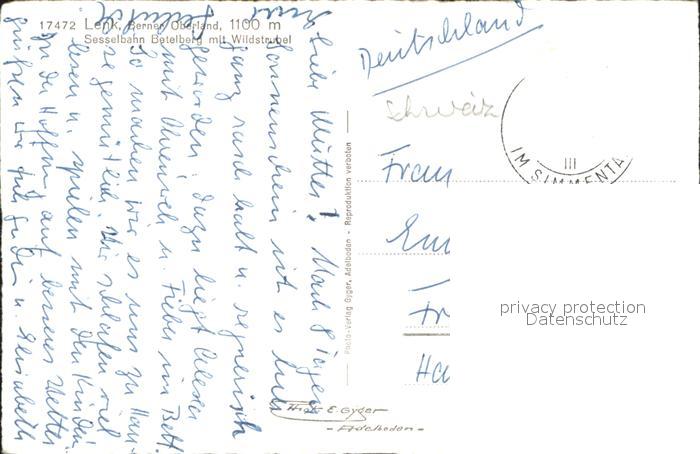 17472 Lenk, Berner Oberland, 1100 m
Sesselbahn Betelberg mit Wildstrubel
Liebe Mutter! Nach 8 Tagen
Sonnenschein ist es hier
ganz rasch kalt u. regnerisch
geworden. Dazu liegt
mit u. Fieber im Bett.
So machen wir es uns zu Hause
gemütlich. Wir schlafen viel
lesen u. spielen mit den Kindern
In der Hoffnung auf besseres Wetter
grüßen wir u. Elisabeth
Photo-Verlag Gyger, Adelboden - Reproduktion verboten
Deutschland
Schweiz
III
IM SIMMENTA
Frau
Em
Fr
Ha
privacy protection
Datenschutz
Phot. E. Gyger
- Adelboden -